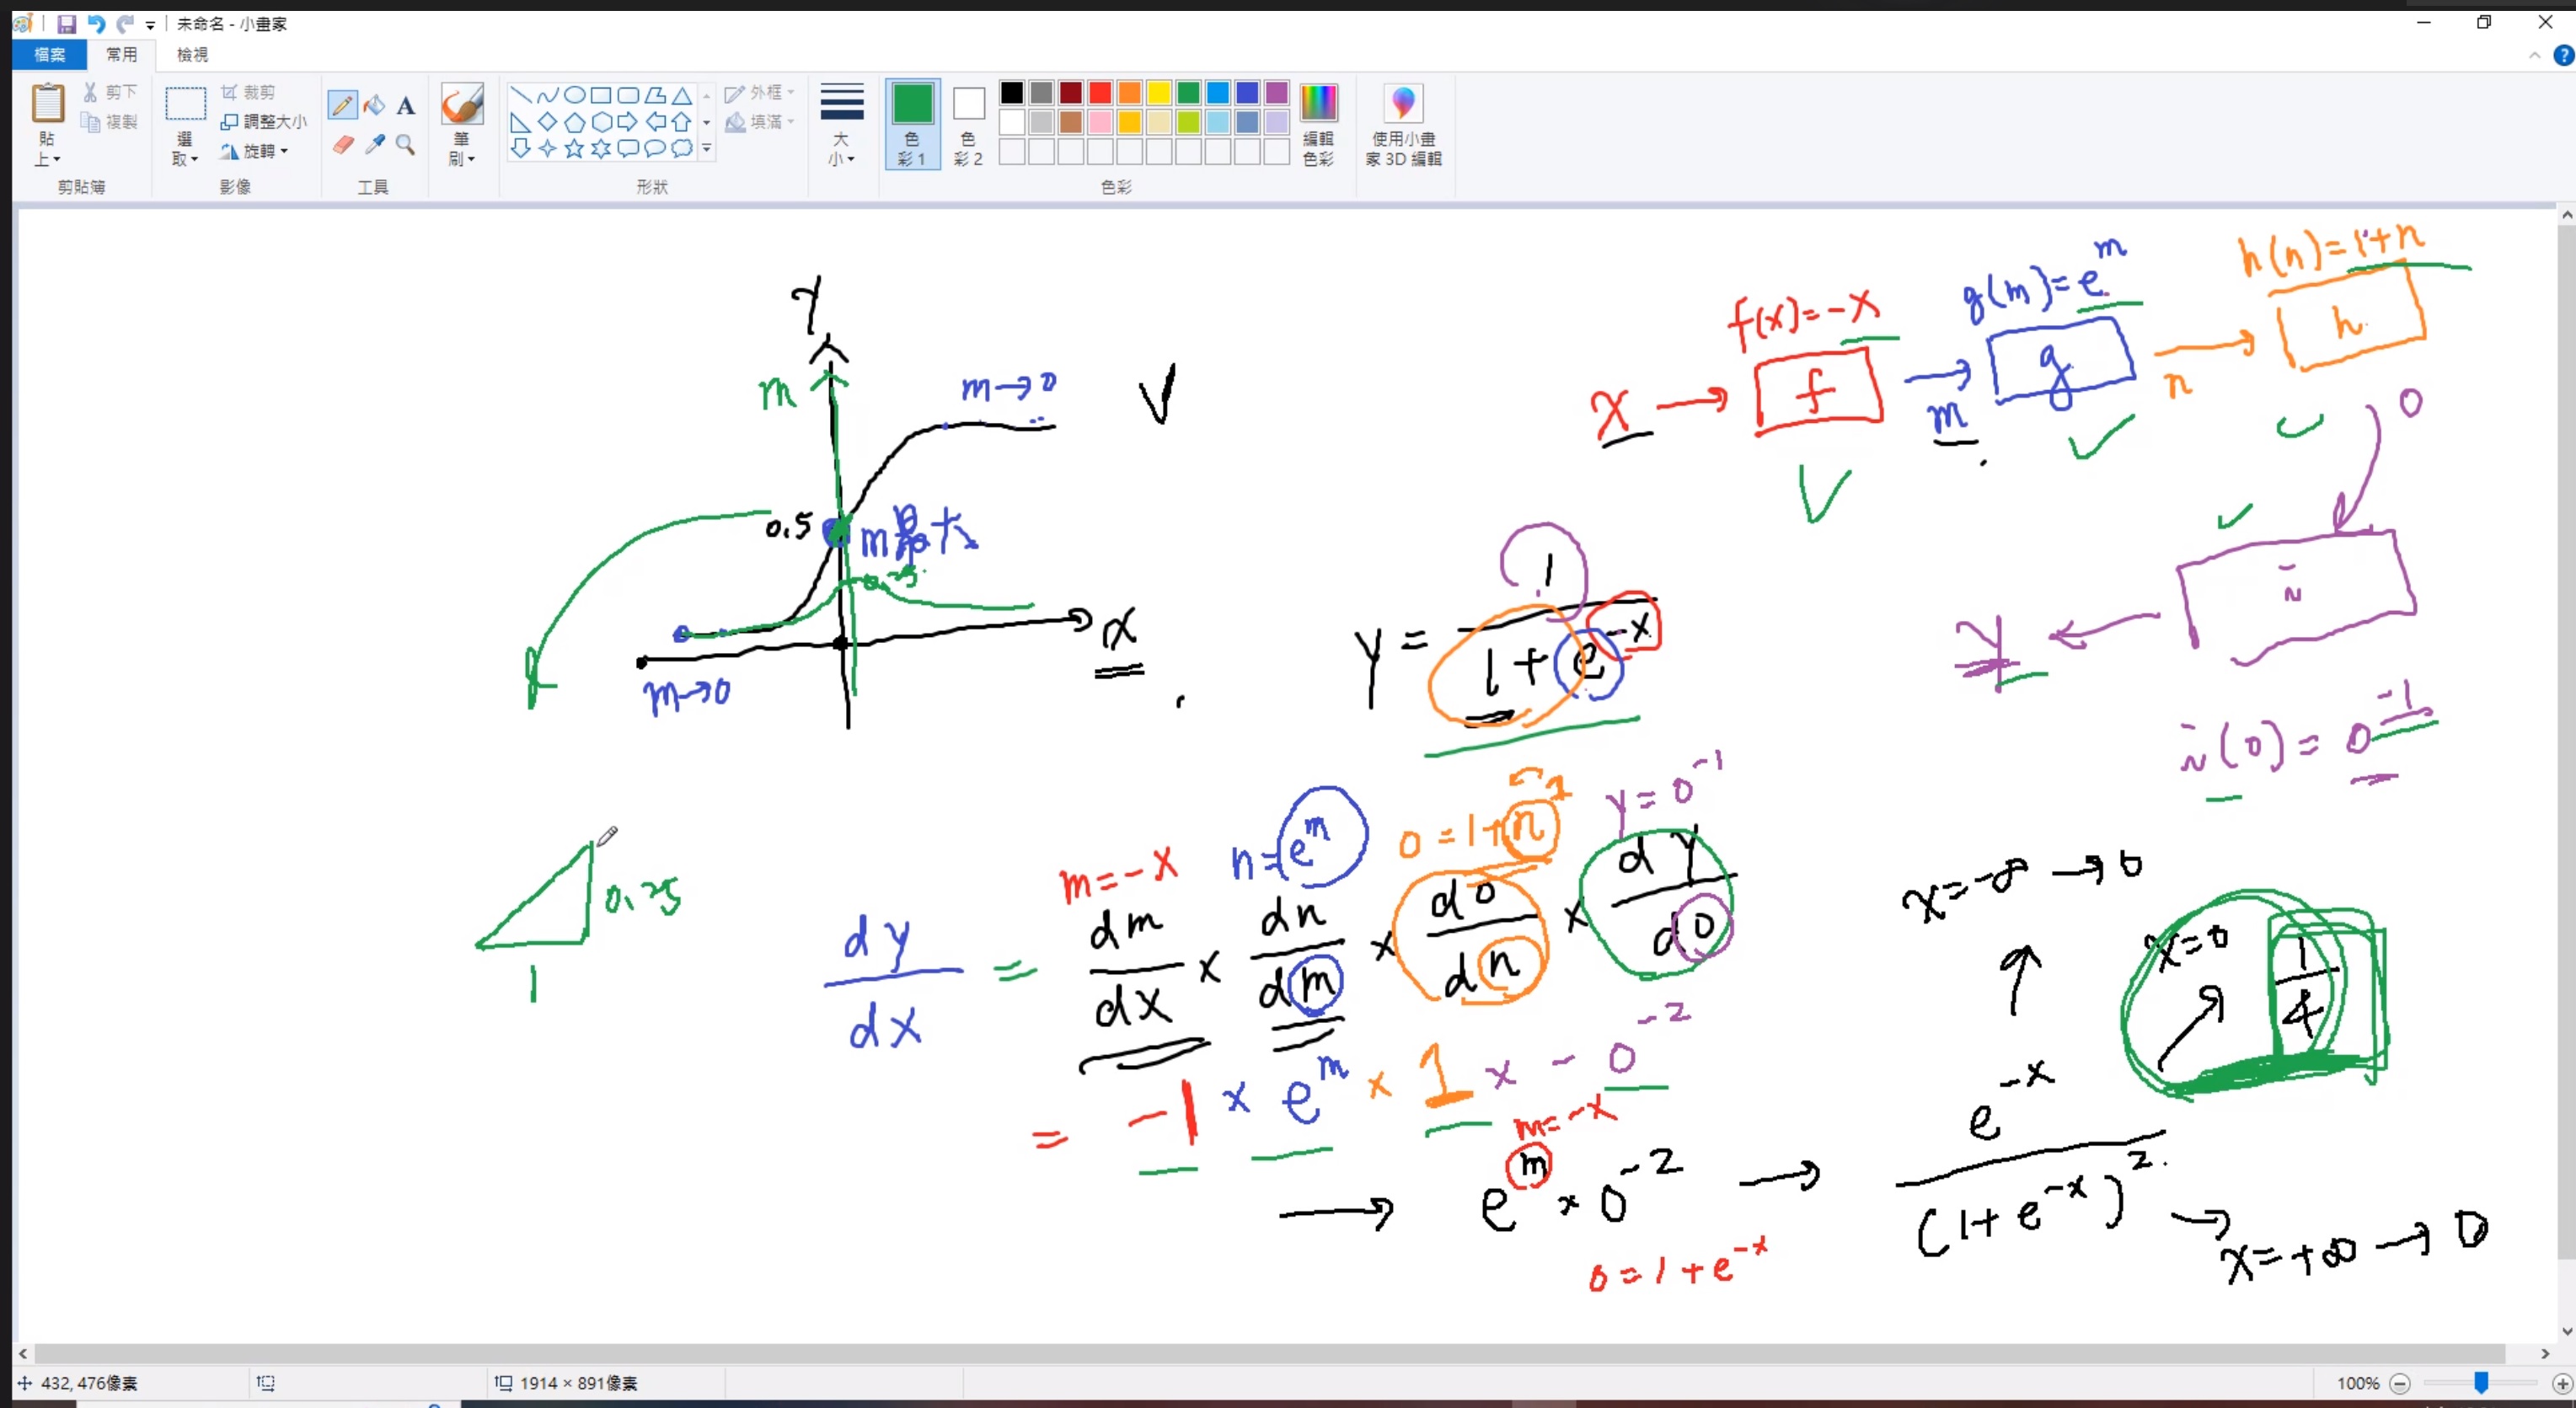 未命名 - 小畫家
檔案 常用 檢視
貼上 剪下 複製 剪貼簿
選取 裁剪 調整大小 旋轉 影像
A 工具
筆刷
外框 填滿 形狀
大小
色彩 1 色彩 2 編輯色彩 色彩
使用小畫家 3D 編輯
Y
m
m→0
0.5 m最大
0.25
x
m→0
f(x)=-x
g(m)=e^m
h(n)=1+n
x → f → m → g → n → h
o
ĩ
y
ĩ(o) = o^-1
Y = 1 / 1+e^-x
m=-x n=e^m o=1+n y=o^-1
dy/dx = dm/dx × dn/dm × do/dn × dy/do
= -1 × e^m × 1 × -o^-2
m=-x
→ e^m × o^-2 → e^-x / (1+e^-x)^2
o=1+e^-x
x=-∞ → 0
x=0 1/4
x=+∞ → 0
0.25
1
432, 476像素 1914 × 891像素 100%